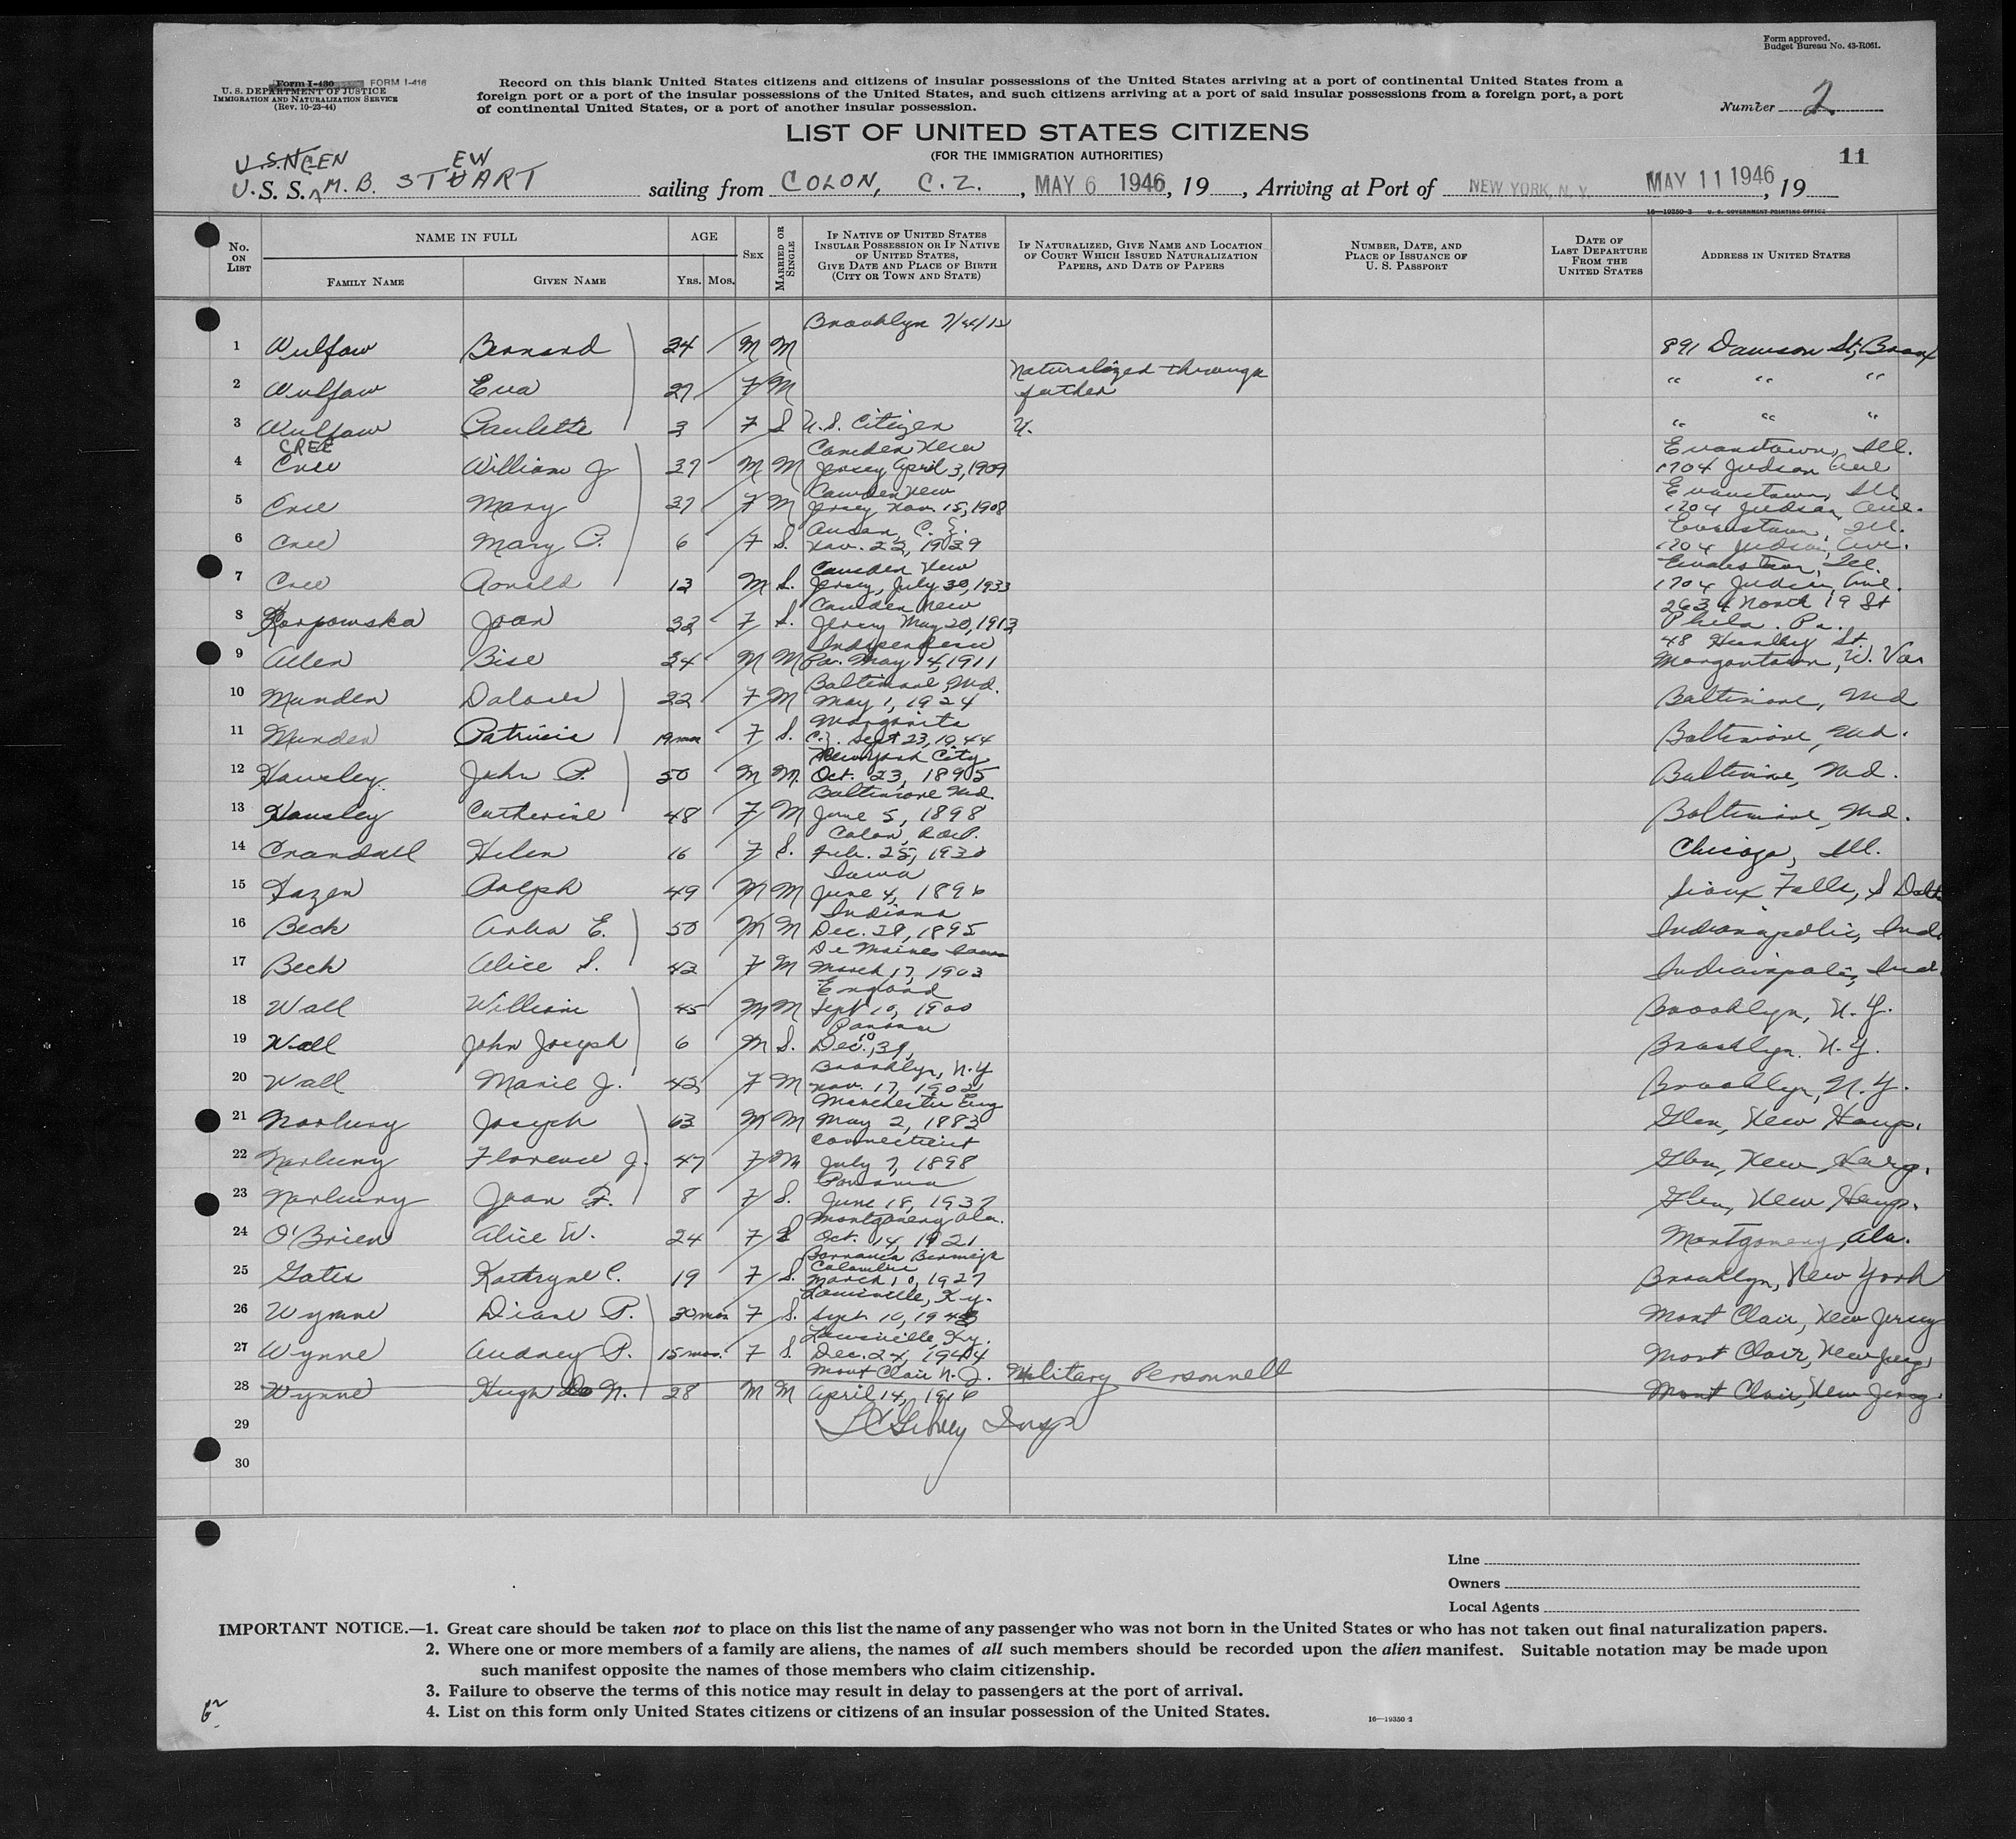 Form approved.
Budget Bureau No. 43-R061.
Form I-430 FORM I-416
U. S. DEPARTMENT OF JUSTICE
IMMIGRATION AND NATURALIZATION SERVICE
(Rev. 10-23-44)
Record on this blank United States citizens and citizens of insular possessions of the United States arriving at a port of continental United States from a
foreign port or a port of the insular possessions of the United States, and such citizens arriving at a port of said insular possessions from a foreign port, a port
of continental United States, or a port of another insular possession.
Number 2
LIST OF UNITED STATES CITIZENS
(FOR THE IMMIGRATION AUTHORITIES)
11
U.S. GEN EW
U. S. S. M. B. STUART sailing from COLON, C. Z. , MAY 6 1946, 19 , Arriving at Port of NEW YORK, N. Y. MAY 11 1946, 19
16—19350-2 U. S. GOVERNMENT PRINTING OFFICE
No. ON LIST
NAME IN FULL
FAMILY NAME GIVEN NAME
AGE
YRS. MOS.
SEX
MARRIED OR SINGLE
IF NATIVE OF UNITED STATES INSULAR POSSESSION OR IF NATIVE OF UNITED STATES, GIVE DATE AND PLACE OF BIRTH (CITY OR TOWN AND STATE)
IF NATURALIZED, GIVE NAME AND LOCATION OF COURT WHICH ISSUED NATURALIZATION PAPERS, AND DATE OF PAPERS
NUMBER, DATE, AND PLACE OF ISSUANCE OF U. S. PASSPORT
DATE OF LAST DEPARTURE FROM THE UNITED STATES
ADDRESS IN UNITED STATES
1 Wulfow Bernard 34 M M Brooklyn 891 Dawson St, Bronx
2 Wulfow Eva 27 F M Naturalized through father " " "
3 Wulfow Paulette 3 F S U.S. Citizen " " "
CREE
4 Cree William J 37 M M Camden New Jersey April 3, 1909 Evanstown, Ill. 1704 Judson Ave
5 Cree Mary 37 F M Camden New Jersey Nov. 15, 1908 Evanstown, Ill. 1704 Judson Ave.
6 Cree Mary P. 6 F S. Ancon, C. Z. Nov. 22, 1939 Evanstown, Ill. 1704 Judson Ave.
7 Cree Ronald 13 M S. Camden New Jersey, July 30, 1933 Evanstown, Ill. 1704 Judson Ave.
8 Karpowska Joan 32 F S. Camden New Jersey May 20, 1913 2634 North 19 St Phila. Pa.
9 Allen Bise 34 M M Pa. May 14, 1911 48 St. Morgantown, W. Va
10 Munden Dolores 22 F M Baltimore, Md. May 1, 1924 Baltimore, Md
11 Munden Patricia 19 mos F S. Margarita C.Z. Sept 23, 1944 Baltimore, Md.
12 Hawsley John P. 50 M M. New York City Oct. 23, 1895 Baltimore, Md.
13 Hawsley Catherine 48 F M Baltimore Md. June 5, 1898 Baltimore, Md.
14 Crandall Helen 16 F S. Colon, R. de P. Feb. 25, 1930 Chicago, Ill.
15 Hazen Ralph 49 M M Iowa June 4, 1896 Sioux Falls, S Dak
16 Beck Arba E. 50 M M Indiana Dec. 28, 1895 Indianapolis, Ind.
17 Beck Alice S. 42 F M De Moines Iowa March 17, 1903 Indianapolis, Ind.
18 Wall William 45 M M England Sept 10, 1900 Brooklyn, N. Y.
19 Wall John Joseph 6 M S. Panama Dec. 10, 39, Brooklyn. N. Y.
20 Wall Marie J. 43 F M Brooklyn, N.Y Nov. 17, 1902 Brooklyn, N. Y.
21 Norbury Joseph 63 M M Manchester Eng May 2, 1883 Glen, New Hamp.
22 Norbury Florence J. 47 F M Connecticut July 7, 1898 Glen, New Hamp.
23 Norbury Joan F. 8 F S. Panama June 18, 1937 Glen, New Hamp.
24 O'Brien Alice W. 24 F S Montgomery Ala. Oct. 14, 1921 Montgomery, Ala.
25 Gates Kathryne C. 19 F S. Colombia March 10, 1927 Brooklyn, New York
26 Wynne Diane P. 30 mos F S. Louisville, Ky. Sept. 10, 1943 Mont Clair, New Jersey
27 Wynne Audrey P. 15 mos. F S. Louisville, Ky. Dec. 24, 1944 Mont Clair, New Jersey
28 Wynne Hugh De N. 28 M M Mont Clair N. J. April 14, 1916 Military Personnell Mont Clair, New Jersey.
29 Insp
30
Line
Owners
Local Agents
IMPORTANT NOTICE.—1. Great care should be taken not to place on this list the name of any passenger who was not born in the United States or who has not taken out final naturalization papers.
2. Where one or more members of a family are aliens, the names of all such members should be recorded upon the alien manifest. Suitable notation may be made upon
such manifest opposite the names of those members who claim citizenship.
3. Failure to observe the terms of this notice may result in delay to passengers at the port of arrival.
4. List on this form only United States citizens or citizens of an insular possession of the United States.
16—19350-2